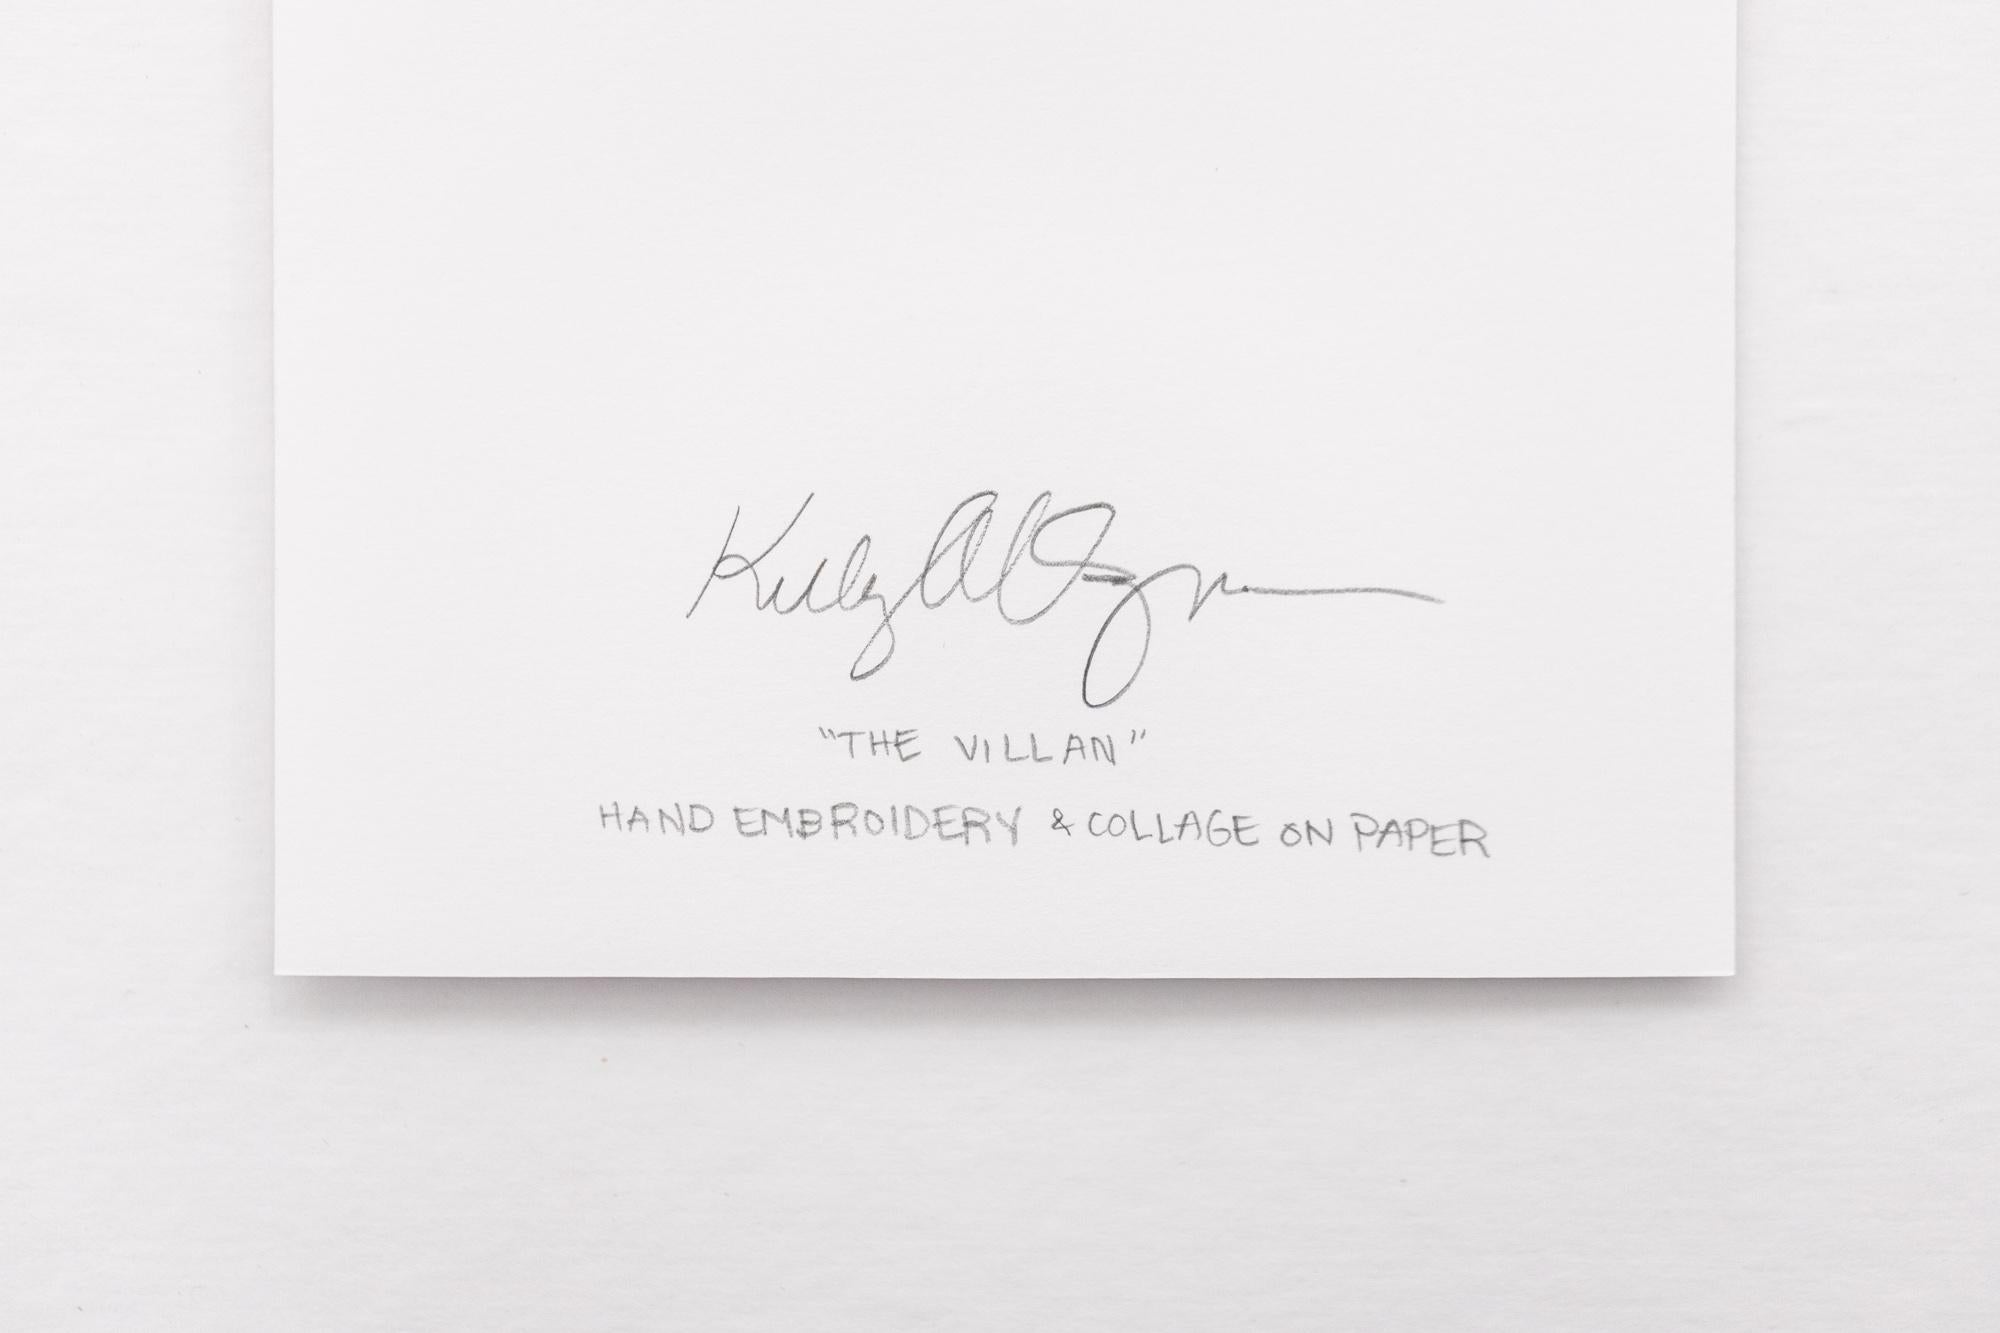 Kelly
"THE VILLAN"
HAND EMBROIDERY & COLLAGE ON PAPER